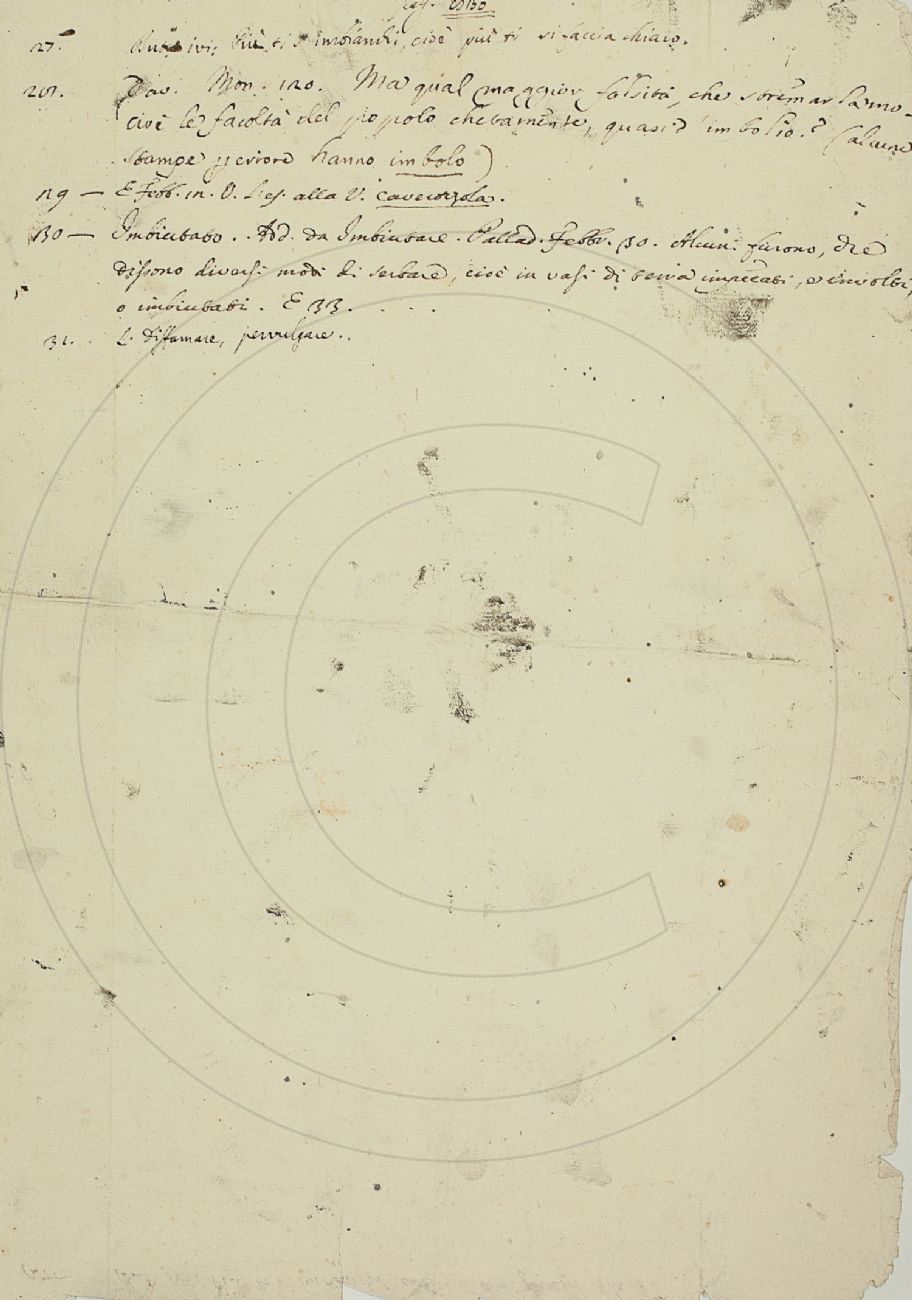 27. ivi: Più ti s'imbianchi, cioè più ti si faccia chiaro.
201. Dav. Mon. 120. Ma qual maggior falsità, che stremar la mo-
cioè le facoltà del popolo chetamente, quasi d'imbolio? (alcune
stampe per errore hanno imbolo)
129 — E Febb. in. V. alla V. caverozzola.
130 — Imbiutato. Ad. da Imbiutare. Pallad. Febbr. 30. Alcuni furono, che
dissono diversi modi di serbare, cioè in vasi di terra impeciati, o involti,
o imbiutati. E 33. . . . .
31. . L. Diffamare, pervulgare. .